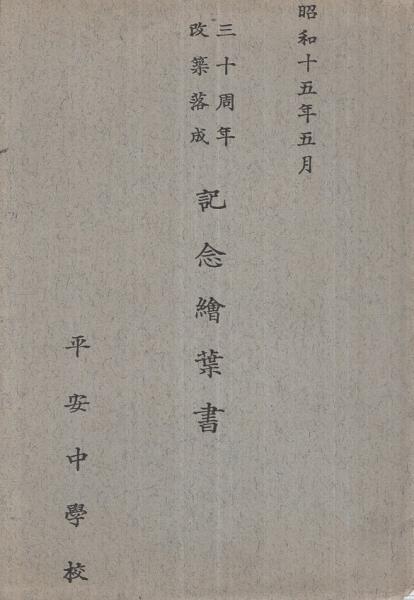 昭和十五年五月
三十周年
改築落成
記念繪葉書
平安中學校